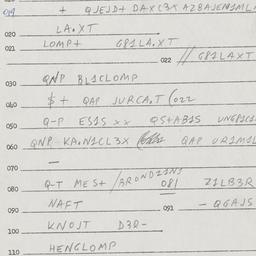 019 + QJEJD+ DAX(3X AZBAJEN1ML
020 LA.XT
021 LOMP+ G81LA.XT
022 // G81LAXT
030 QNP BL1CLOMP
040 $+ QAP JURCA.T (022
050 Q-P ES1S xx QS+ABIS
060 QNP KA.N1CL3X QAP UR1M1
—
070
080 Q-T MES+ /AROND21NJ 081 Z1LB3R
090 NAFT 091 - QGAJS
100 KNOJT D3R-
110 HENGLOMP